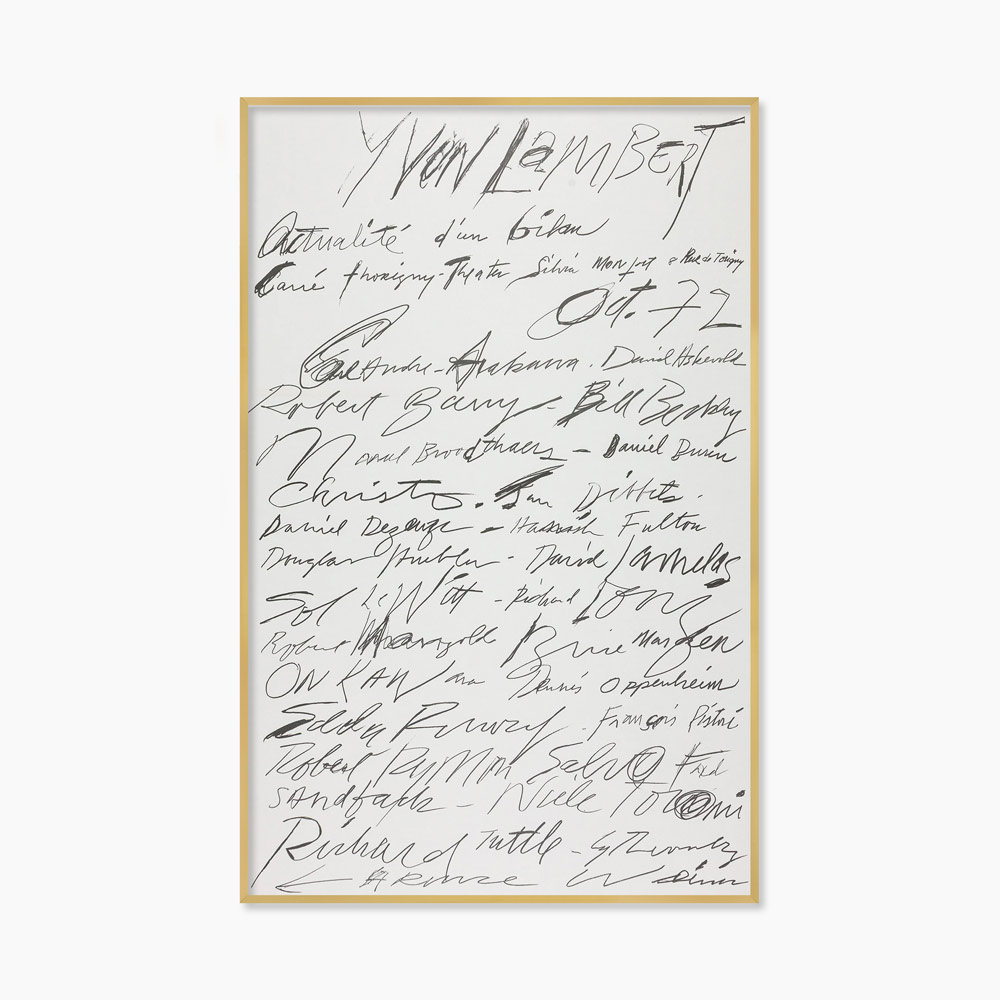 YVON LaMBERT
Actualité d'un bilan
Carré Thorigny - Theater Silvia Monfort 2 Rue de Torigny
Oct. 72
Carl Andre - Arakawa. David Askevold
Robert Barry - Bill Beckley
Marcel Broodthaers - Daniel Buren
Christo. Jan Dibbets.
Daniel Dezeuze - Hamish Fulton
Douglas Huebler - David Lamelas
Sol LeWitt - Richard Long
Robert Mangold Brice Marden
ON KAWara Dennis Oppenheim
Edda Renouf. François Ristori
Robert Ryman SalvO Fred
SAndback - Niele Toroni
Richard Tuttle - Cy Twombly
Lawrence Weiner